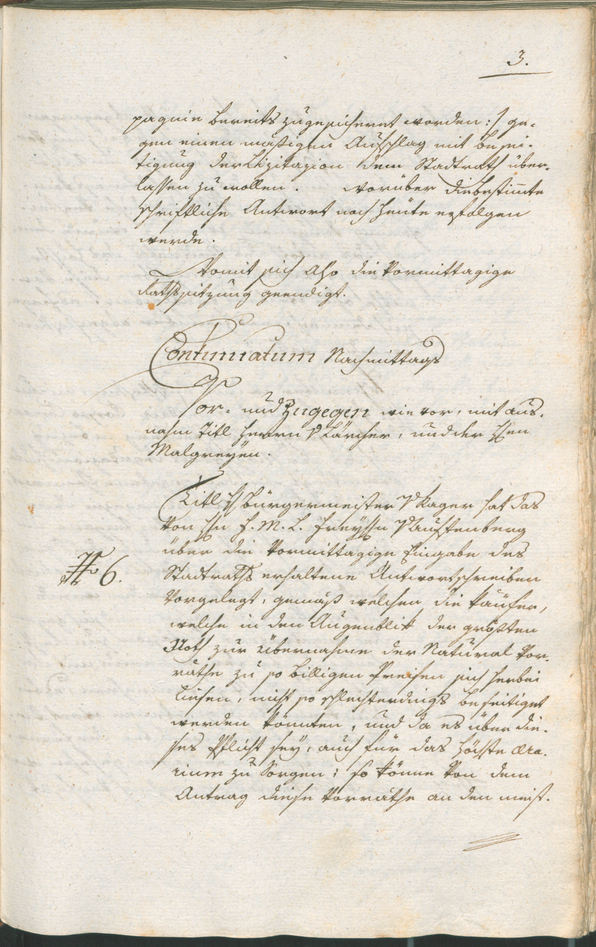 3.
pagnie bereits zugesicheret worden :/ ge-
gen einen mäßigen Aufschlag mit besei-
tigung der Lizitazion dem Stadtrath über-
lassen zu wollen. Worüber die bestimte
schriftliche Antwort noch heute erfolgen
werde.
Womit sich also die Vormittagige
Rathssitzung geendigt.
Continuatum Nachmittags
Vor- und Zugegen wie vor, mit aus-
nahm Titl Herrn v Lärcher, und der Hen
Malgreyen.
Titl H Bürgermeister v Kager hat das
von Hn F. M. L. Freyhn v Auffenberg
über die Vormittagige Eingabe des
# 6. Stadtraths erhaltene Antwortschreiben
Vorgelegt, gemäß welchen die Käufer,
welche in dem Augenblik der größten
Noth zur Übernahme der Natural Vor-
räthe zu so billigen Preisen sich herbei
ließen, nicht so schlechterdings beseitiget
werden könnten, und da es über die-
ses Pflicht sey, auch für das höchste Aera-
rium zu Sorgen; so könne von dem
Antrag diese Vorräthe an den meist-